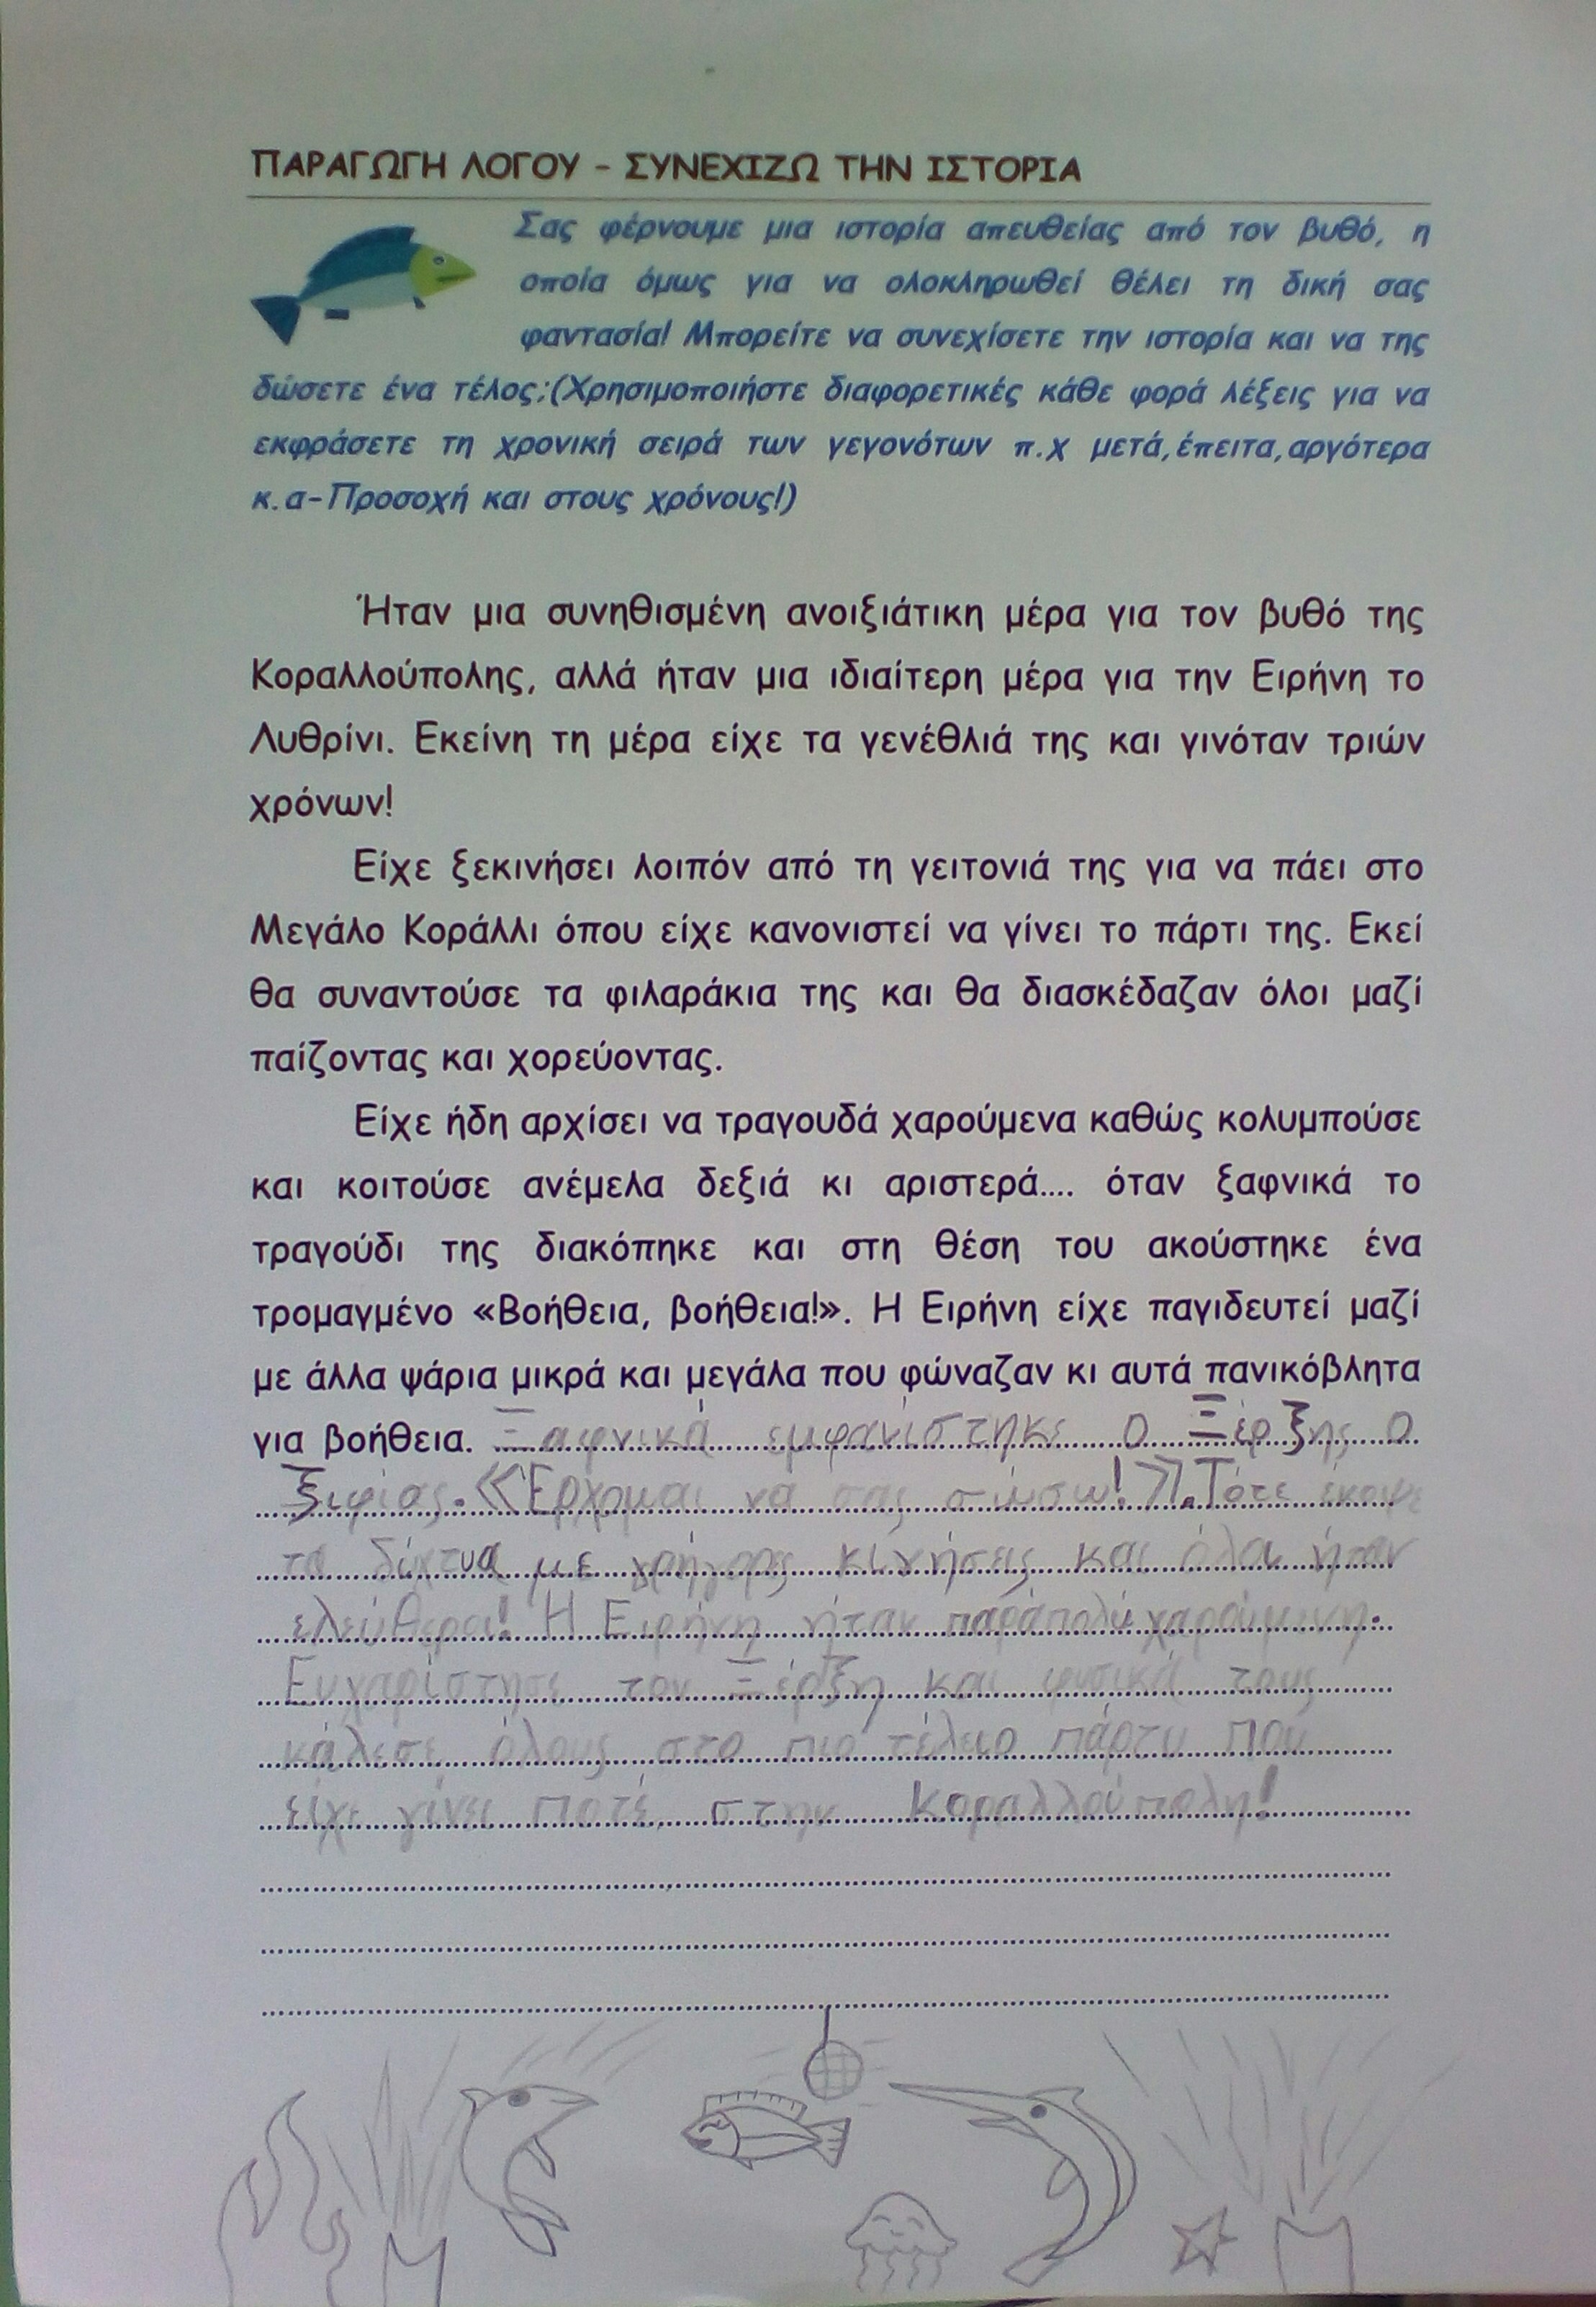 ΠΑΡΑΓΩΓΗ ΛΟΓΟΥ - ΣΥΝΕΧΙΖΩ ΤΗΝ ΙΣΤΟΡΙΑ
Σας φέρνουμε μια ιστορία απευθείας από τον βυθό, η
οποία όμως για να ολοκληρωθεί θέλει τη δική σας
φαντασία! Μπορείτε να συνεχίσετε την ιστορία και να της
δώσετε ένα τέλος;(Χρησιμοποιήστε διαφορετικές κάθε φορά λέξεις για να
εκφράσετε τη χρονική σειρά των γεγονότων π.χ μετά,έπειτα,αργότερα
κ.α-Προσοχή και στους χρόνους!)
Ήταν μια συνηθισμένη ανοιξιάτικη μέρα για τον βυθό της
Κοραλλούπολης, αλλά ήταν μια ιδιαίτερη μέρα για την Ειρήνη το
Λυθρίνι. Εκείνη τη μέρα είχε τα γενέθλιά της και γινόταν τριών
χρόνων!
Είχε ξεκινήσει λοιπόν από τη γειτονιά της για να πάει στο
Μεγάλο Κοράλλι όπου είχε κανονιστεί να γίνει το πάρτι της. Εκεί
θα συναντούσε τα φιλαράκια της και θα διασκέδαζαν όλοι μαζί
παίζοντας και χορεύοντας.
Είχε ήδη αρχίσει να τραγουδά χαρούμενα καθώς κολυμπούσε
και κοιτούσε ανέμελα δεξιά κι αριστερά.... όταν ξαφνικά το
τραγούδι της διακόπηκε και στη θέση του ακούστηκε ένα
τρομαγμένο «Βοήθεια, βοήθεια!». Η Ειρήνη είχε παγιδευτεί μαζί
με άλλα ψάρια μικρά και μεγάλα που φώναζαν κι αυτά πανικόβλητα
για βοήθεια. Ξαφνικά εμφανίστηκε ο Ξέρξης ο
ξιφίας. «Έρχομαι να σας σώσω!». Τότε έκοψε
τα δίχτυα με γρήγορες κινήσεις και όλοι ήταν
ελεύθεροι! Η Ειρήνη ήταν παράπολύ χαρούμενη.
Ευχαρίστησε τον Ξέρξη και φυσικά τους
κάλεσε όλους στο πιο τέλειο πάρτυ που
είχε γίνει ποτέ στην Κοραλλούπολη!